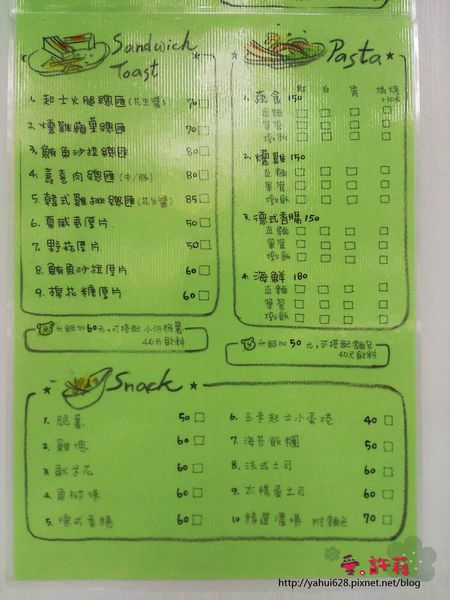 Sandwich
Toast
1. 起士火腿總匯(花生醬) 70
2. 燻雞蘋果總匯 70
3. 鮪魚沙拉總匯 80
4. 壽喜肉總匯(牛/豚) 80
5. 韓式雞排總匯(花生醬) 85
6. 夏威夷厚片 50
7. 野菇厚片 50
8. 鮪魚沙拉厚片 60
9. 棉花糖厚片 60
升級加60元,可搭配小份脆薯
40元飲料
Pasta
紅 白 青 焗烤
+30元
1. 蔬食 150
直麵
筆管
燉飯
2. 燻雞 150
直麵
筆管
燉飯
3. 德式香腸 150
直麵
筆管
燉飯
4. 海鮮 180
直麵
筆管
燉飯
升級加50元,可搭配麵包
40元飲料
Snack
1. 脆薯 50
2. 雞塊 60
3. 魷米花 60
4. 魚柳條 60
5. 德式香腸 60
6. 玉米起士小蛋捲 40
7. 海苔飯糰 50
8. 法式土司 60
9. 太陽蛋土司 60
10. 精選濃湯 附麵包 70
愛。許莉
http://yahui628.pixnet.net/blog